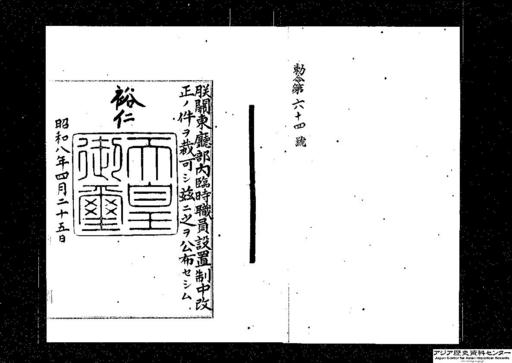 勅令第六十四號
朕關東廳部內臨時職員設置制中改
正ノ件ヲ裁可シ玆ニ之ヲ公布セシム
裕仁
天皇
御璽
昭和八年四月二十五日
アジア歴史資料センター
Japan Center for Asian Historical Records